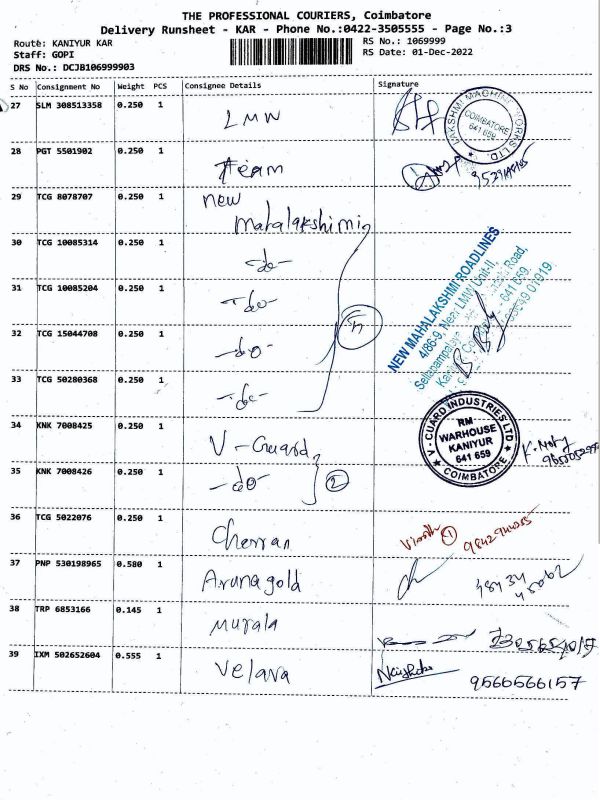 THE PROFESSIONAL COURIERS, Coimbatore
Delivery Runsheet - KAR - Phone No.:0422-3505555 - Page No.:3
Route: KANIYUR KAR
Staff: GOPI
DRS No.: DCJB106999903
RS No.: 1069999
RS Date: 01-Dec-2022
S No Consignment No Weight PCS Consignee Details Signature
27 SLM 308513358 0.250 1 LMW
LAKSHMI MACHINE WORKS LTD.
COIMBATORE
641 659
28 PGT 5501902 0.250 1 Team
29 TCG 8078707 0.250 1 new
mahalakshimi
30 TCG 10085314 0.250 1 -do-
31 TCG 10085204 0.250 1 -do-
32 TCG 15044708 0.250 1 -do-
33 TCG 50280368 0.250 1 -do-
NEW MAHALAKSHMI ROADLINES
4/86-9, Near LMW Unit-II,
Road,
641 659
34 KNK 7008425 0.250 1 V-Guard
35 KNK 7008426 0.250 1 -do- 2
V-GUARD INDUSTRIES LTD
RM
WARHOUSE
KANIYUR
641 659
COIMBATORE
36 TCG 5022076 0.250 1 Cherran
37 PNP 530198965 0.580 1 Arunagold
38 TRP 6853166 0.145 1 murala
39 IXM 502652604 0.555 1 Velava 9566566157